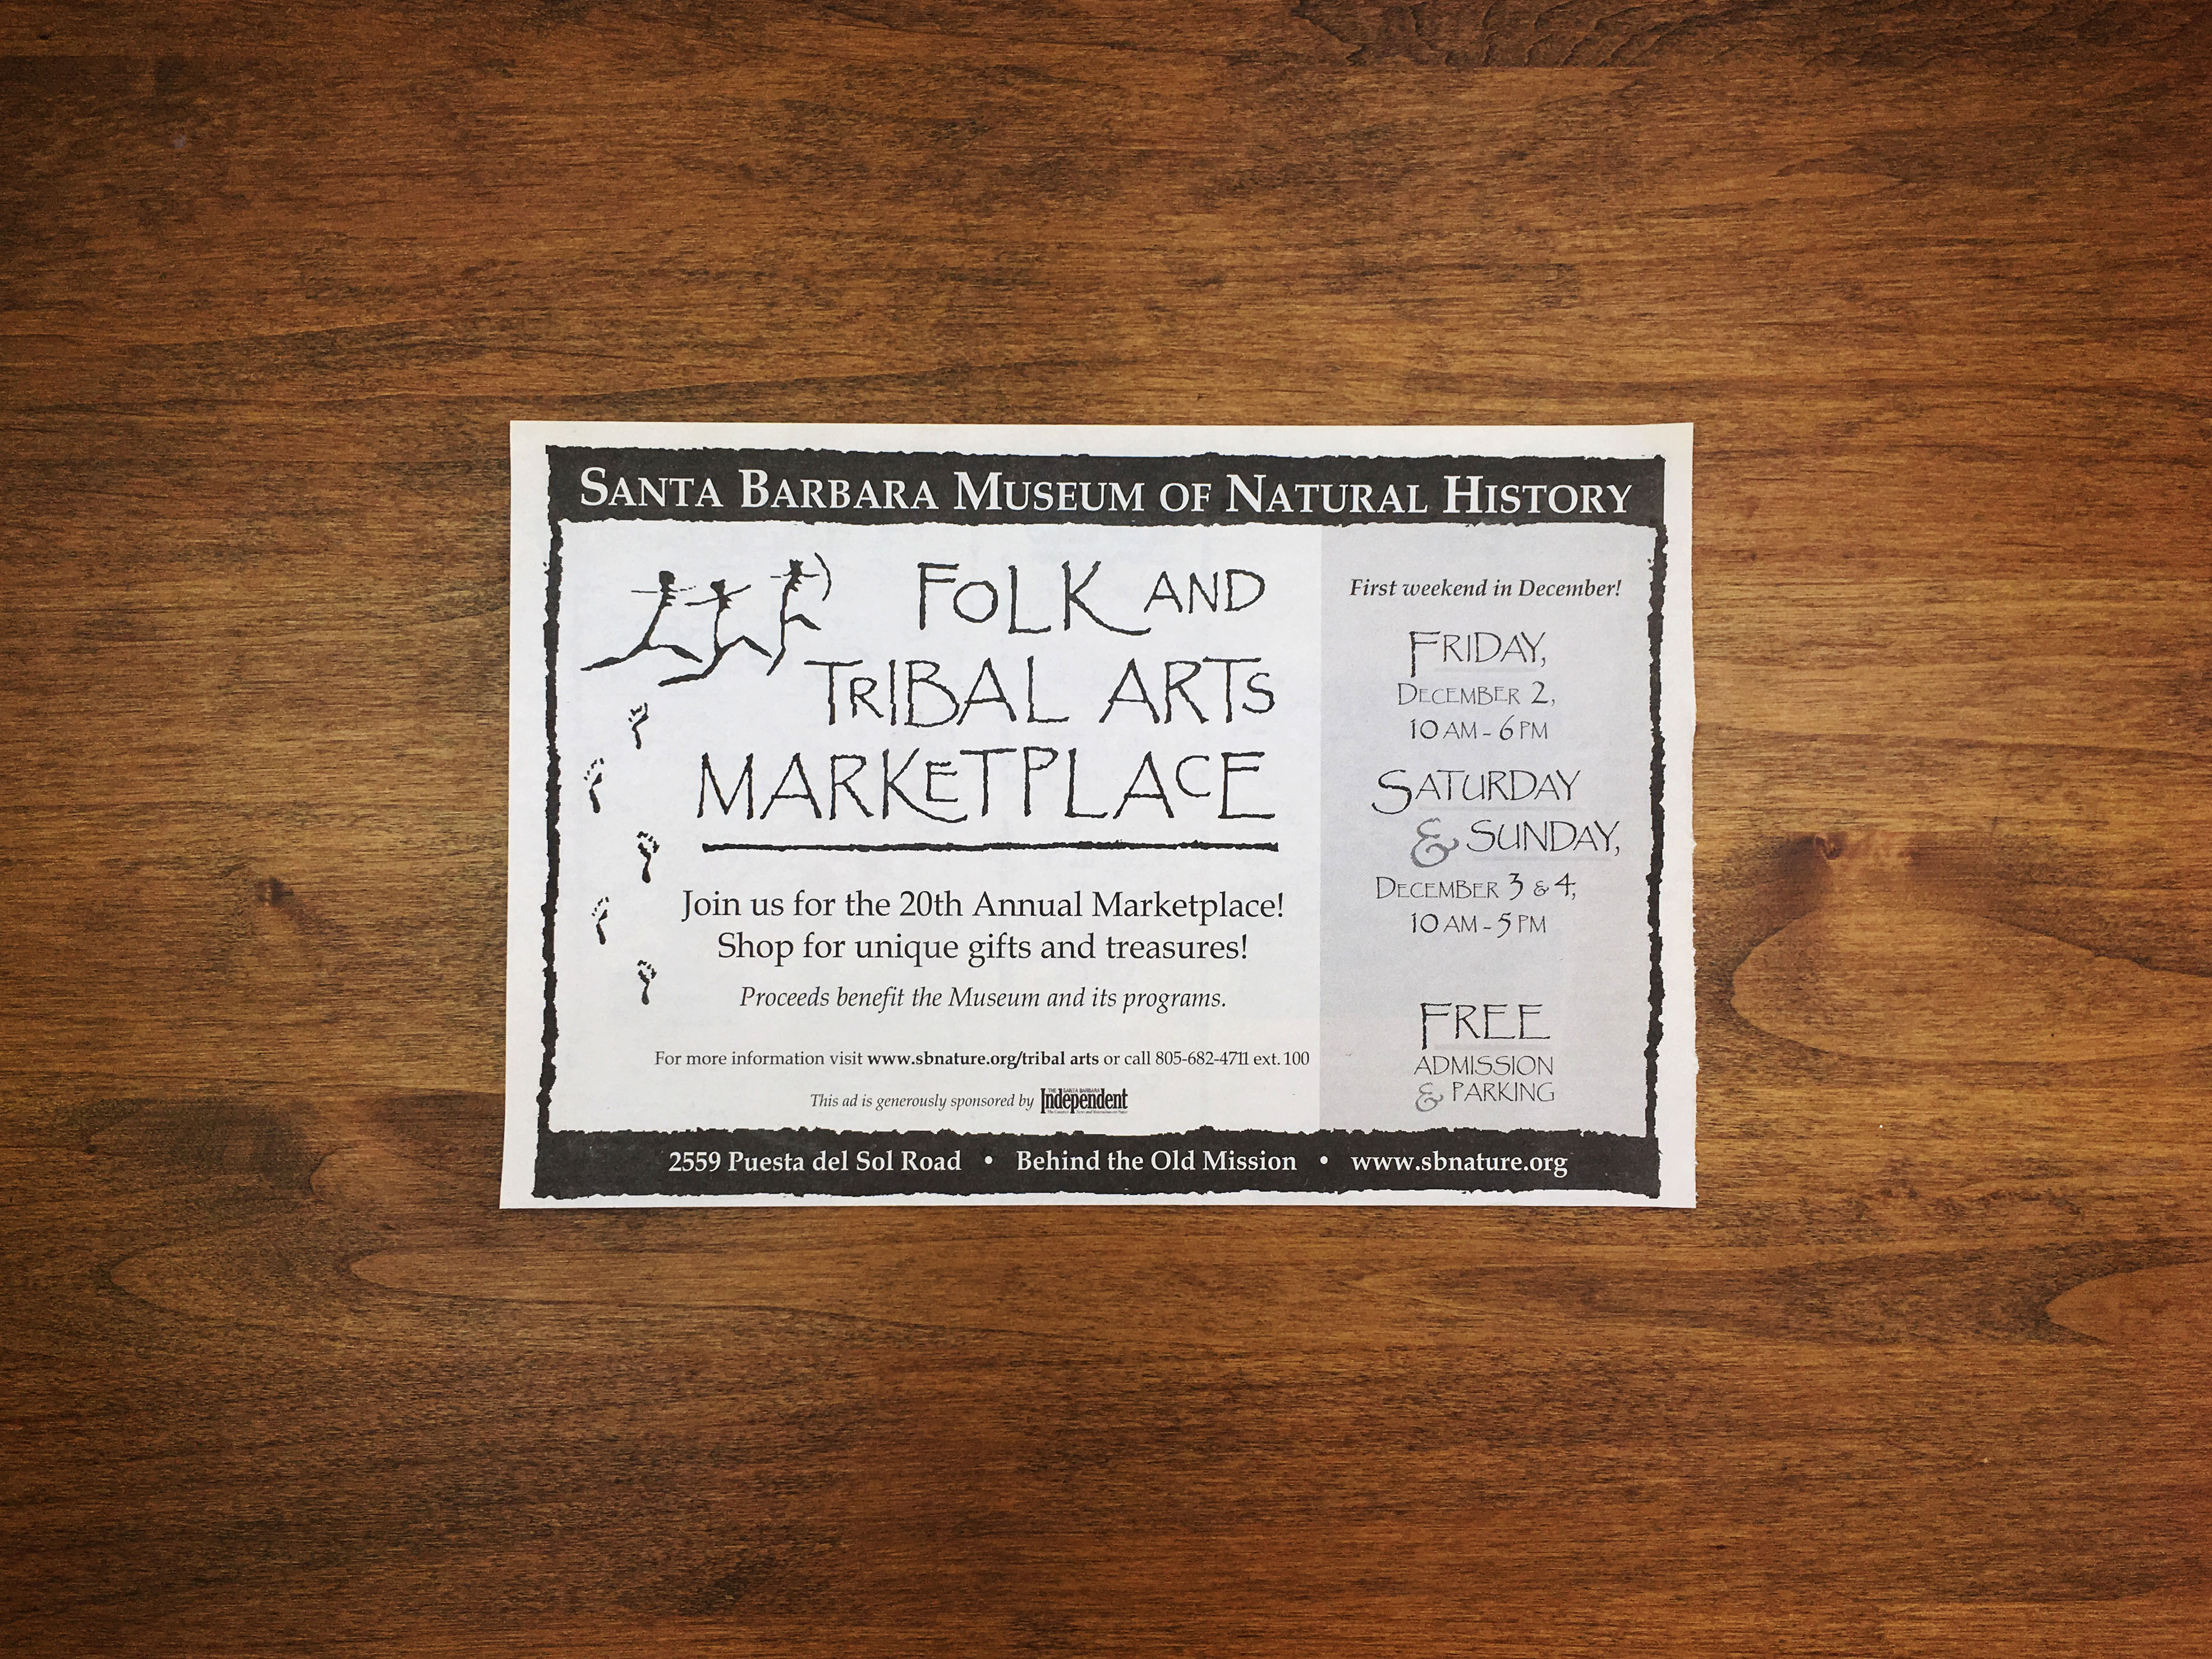 SANTA BARBARA MUSEUM OF NATURAL HISTORY
FOLK AND
TRIBAL ARTS
MARKETPLACE
Join us for the 20th Annual Marketplace!
Shop for unique gifts and treasures!
Proceeds benefit the Museum and its programs.
For more information visit www.sbnature.org/tribal arts or call 805-682-4711 ext. 100
This ad is generously sponsored by THE SANTA BARBARA Independent
First weekend in December!
FRIDAY,
DECEMBER 2,
10 AM - 6 PM
SATURDAY
& SUNDAY,
DECEMBER 3 & 4,
10 AM - 5 PM
FREE
ADMISSION
& PARKING
2559 Puesta del Sol Road • Behind the Old Mission • www.sbnature.org